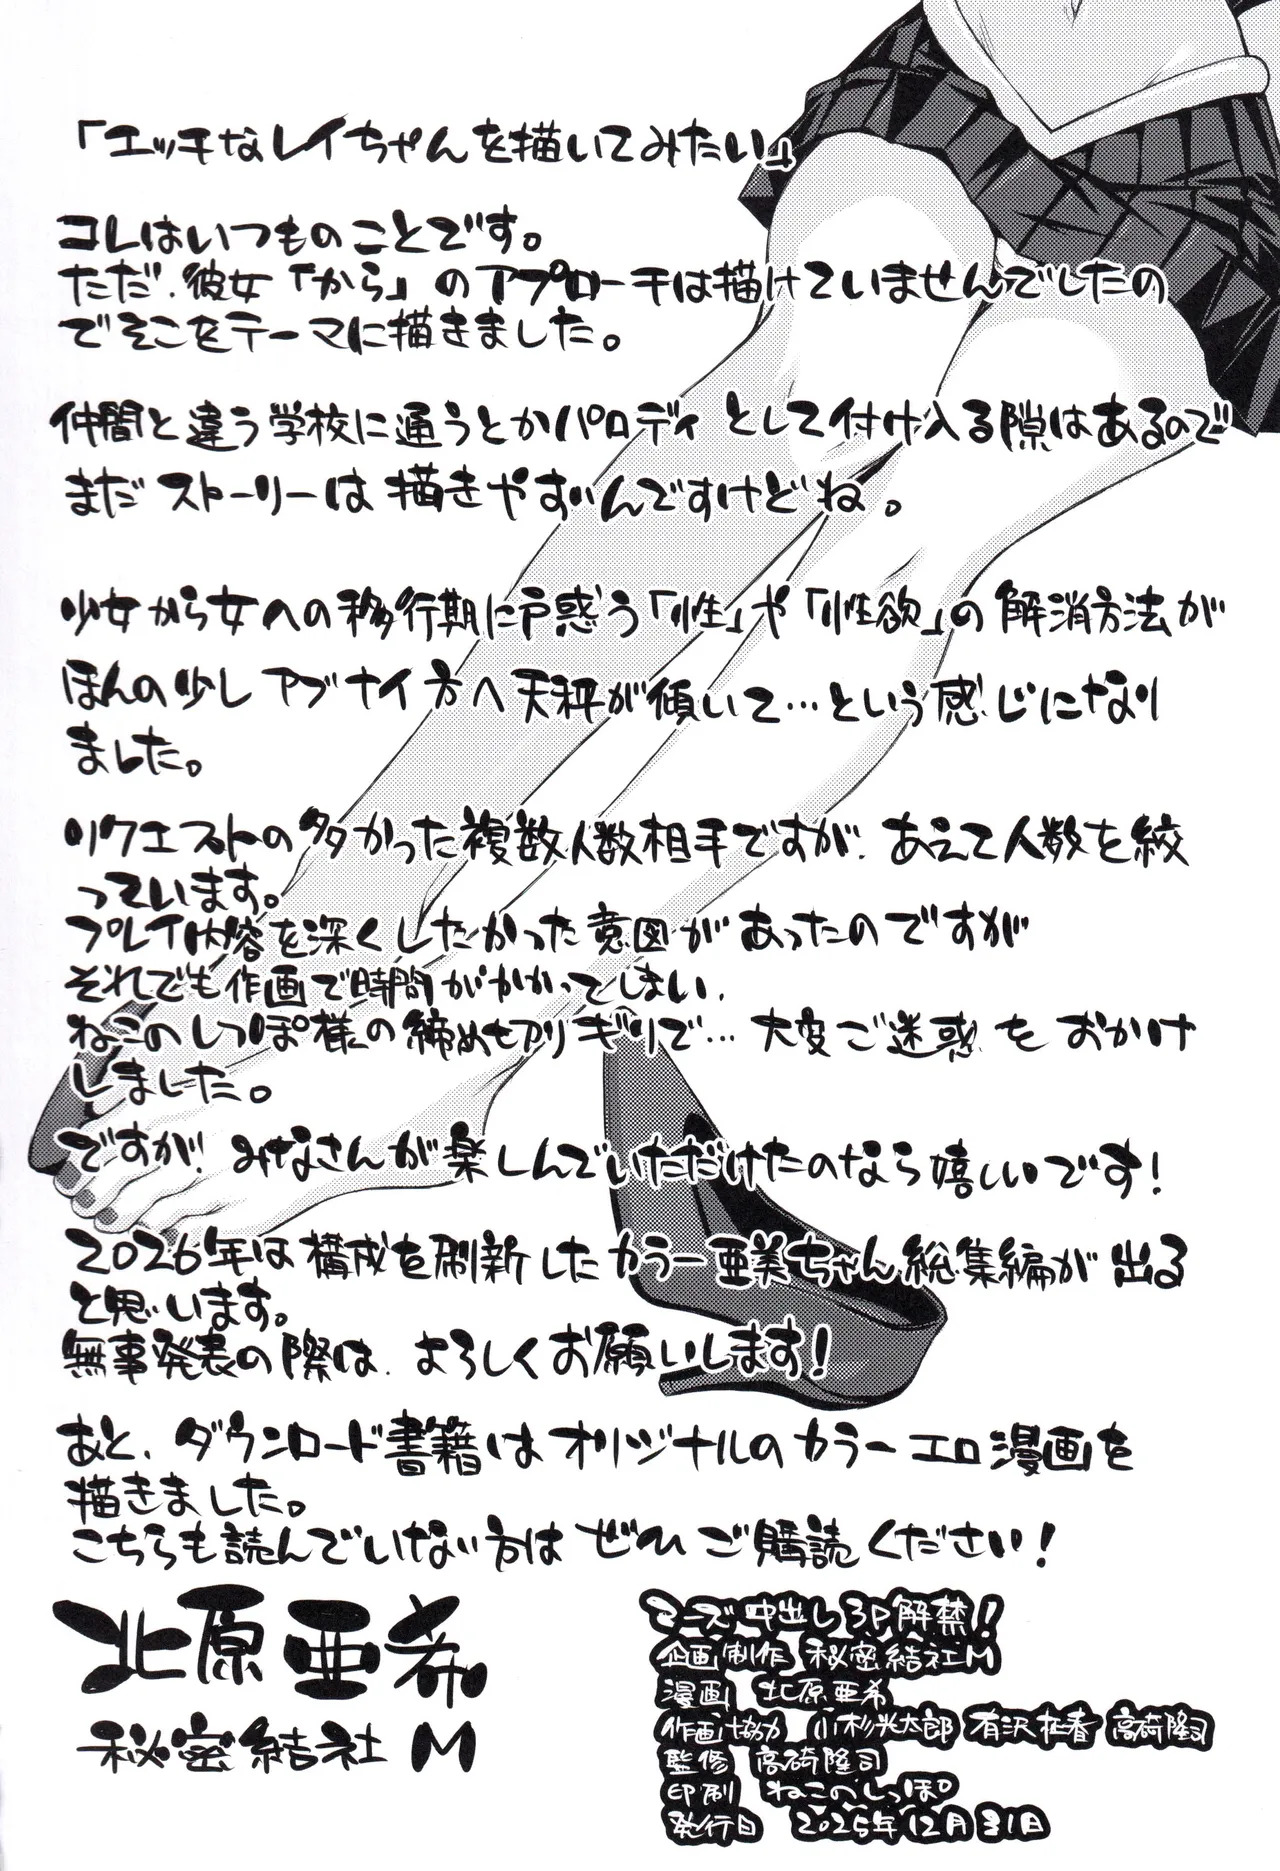 「エッチなレイちゃんを描いてみたい」
コレはいつものことです。
ただ、彼女「から」のアプローチは描けていませんでしたの
でそこをテーマに描きました。
仲間と違う学校に通うとかパロディとして付け入る隙はあるので
まだストーリーは描きやすいんですけどね。
少女から女への移行期に戸惑う「性」や「性欲」の解消方法が
ほんの少しアブナイ方へ天秤が傾いて…という感じになり
ました。
リクエストの多かった複数人数相手ですが、あえて人数を絞
っています。
プレイ内容を深くしたかった意図があったのですが
それでも作画で時間がかかってしまい、
ねこのしっぽ様の締め切りギリで…大変ご迷惑をおかけ
しました。
ですが、みなさんが楽しんでいただけたのなら嬉しいです!
2026年は構成を刷新したカラー亜美ちゃん総集編が出る
と思います。
無事発表の際は、よろしくお願いします!
あと、ダウンロード書籍はオリジナルのカラーエロ漫画を
描きました。
こちらも読んでいない方はぜひご購読ください!
北原亜希
秘密結社M
マーズ中出し3P解禁!
企画制作 秘密結社M
漫画 北原亜希
作画協力 小杉光太郎 有沢杜春 高崎隆司
監修 高崎隆司
印刷 ねこのしっぽ
発行日 2025年12月31日